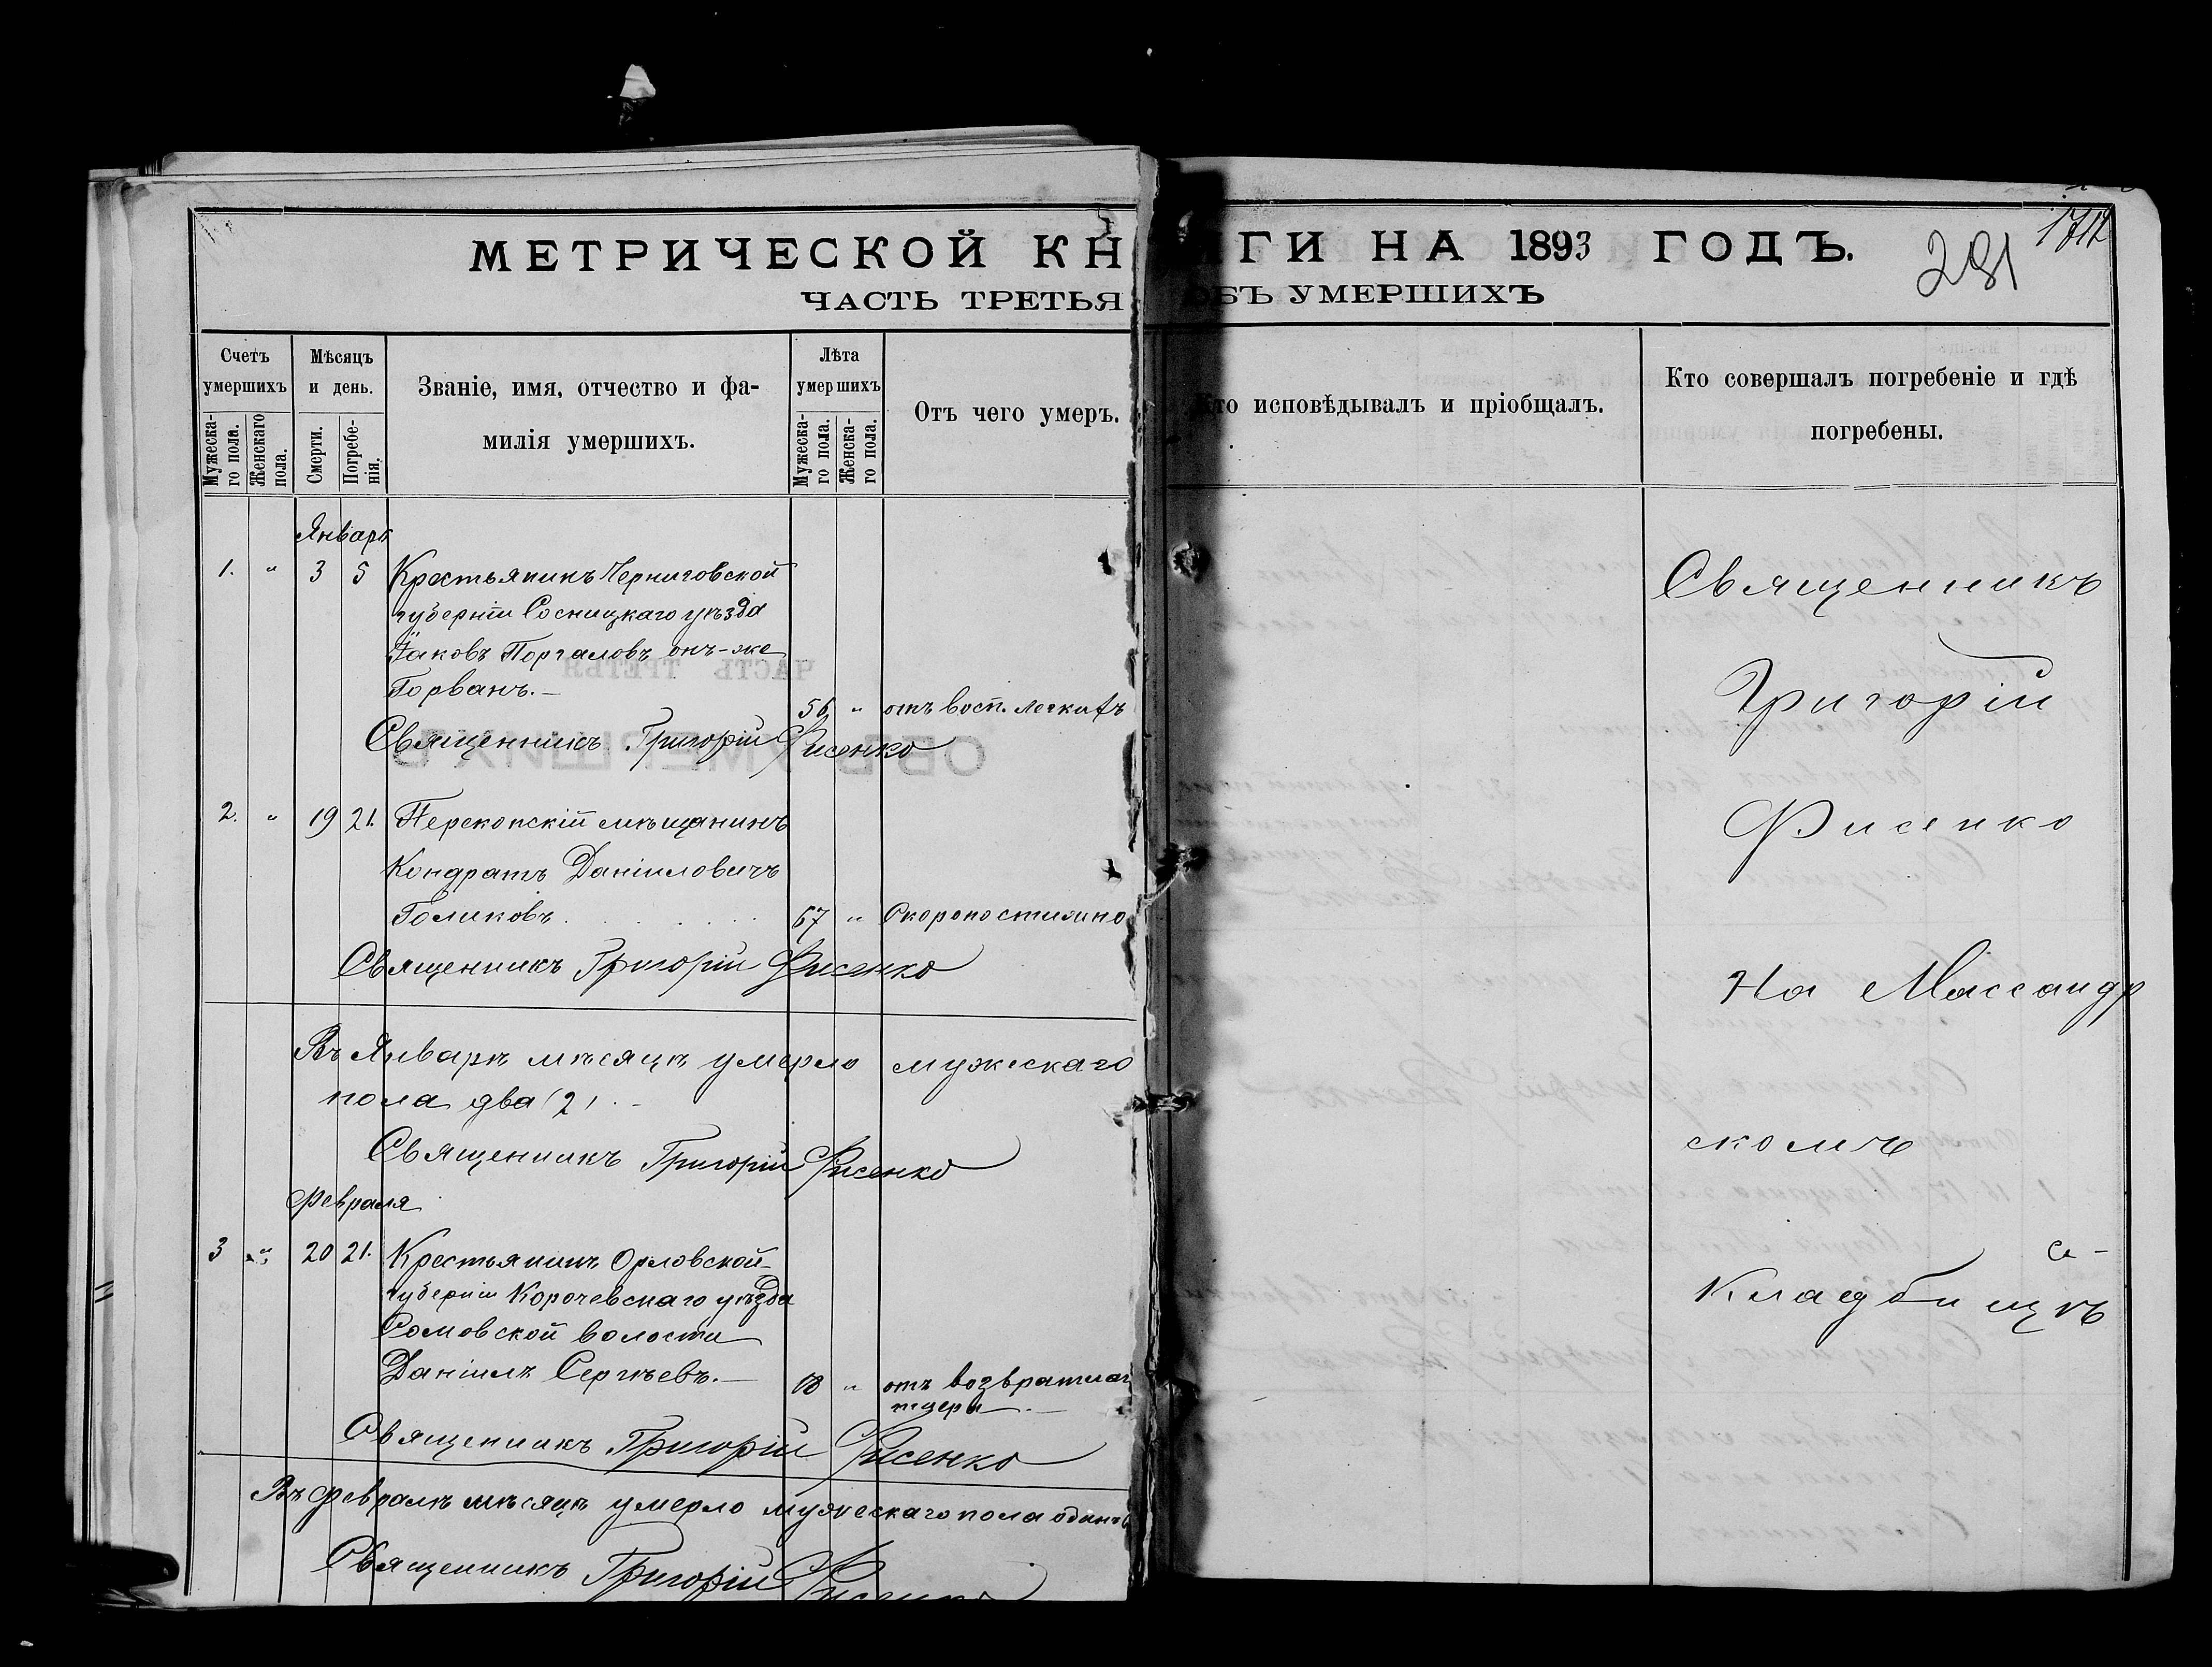 МЕТРИЧЕСКОЙ КНИГИ НА 1893 ГОДЪ.
281
1712
ЧАСТЬ ТРЕТЬЯ ОБЪ УМЕРШИХЪ
Счетъ умершихъ
Мужеска-
го пола.
Женскаго
пола.
Мѣсяцъ и день.
Смерти.
Погребе-
нія.
Званіе, имя, отчество и фа-
милія умершихъ.
Лѣта умершихъ
Мужеска-
го пола.
Женска-
го пола.
Отъ чего умеръ.
Кто исповѣдывалъ и пріобщалъ.
Кто совершалъ погребеніе и гдѣ
погребены.
Январь
1. " 3 5 Крестьянинъ Черниговской
губерніи Сосницкаго уѣзда
Іаковъ онъ-же
Горванъ.—
56 " отъ восп. легкихъ
Священникъ Григорій Фисенко
2. " 19 21. Перекопскій мѣщанинъ
Кондратъ Даніиловичъ
Голиковъ. 67 " Скоропостижно
Священникъ Григорій Фисенко
Въ Январѣ мѣсяцѣ умерло мужескаго
пола два (2).—
Священникъ Григорій Фисенко
Февраля
3 " 20 21. Крестьянинъ Орловской
губерніи Корочевскаго уѣзда
Сомовской волости
Даніилъ Сергѣевъ.— 18 " отъ возвратнаг
тифа.—
Священникъ Григорій Фисенко
Въ Февралѣ мѣсяцѣ умерло мужескаго пола одинъ
Священникъ Григорій Фисенко
Священникъ
Григорій
Фисенко
На Массандр
скомъ
Кладбищѣ